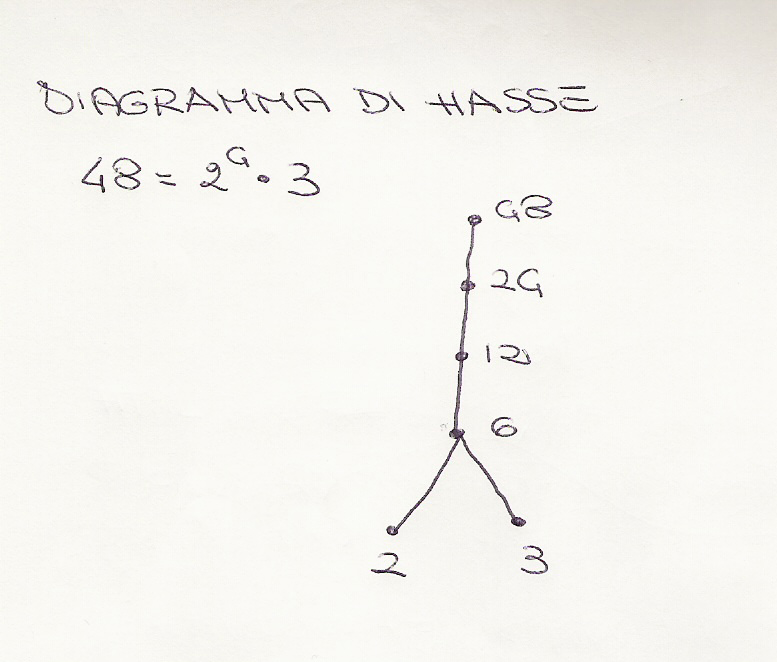 DIAGRAMMA DI HASSE
48 = 2⁴ · 3
48
24
12
6
2 3